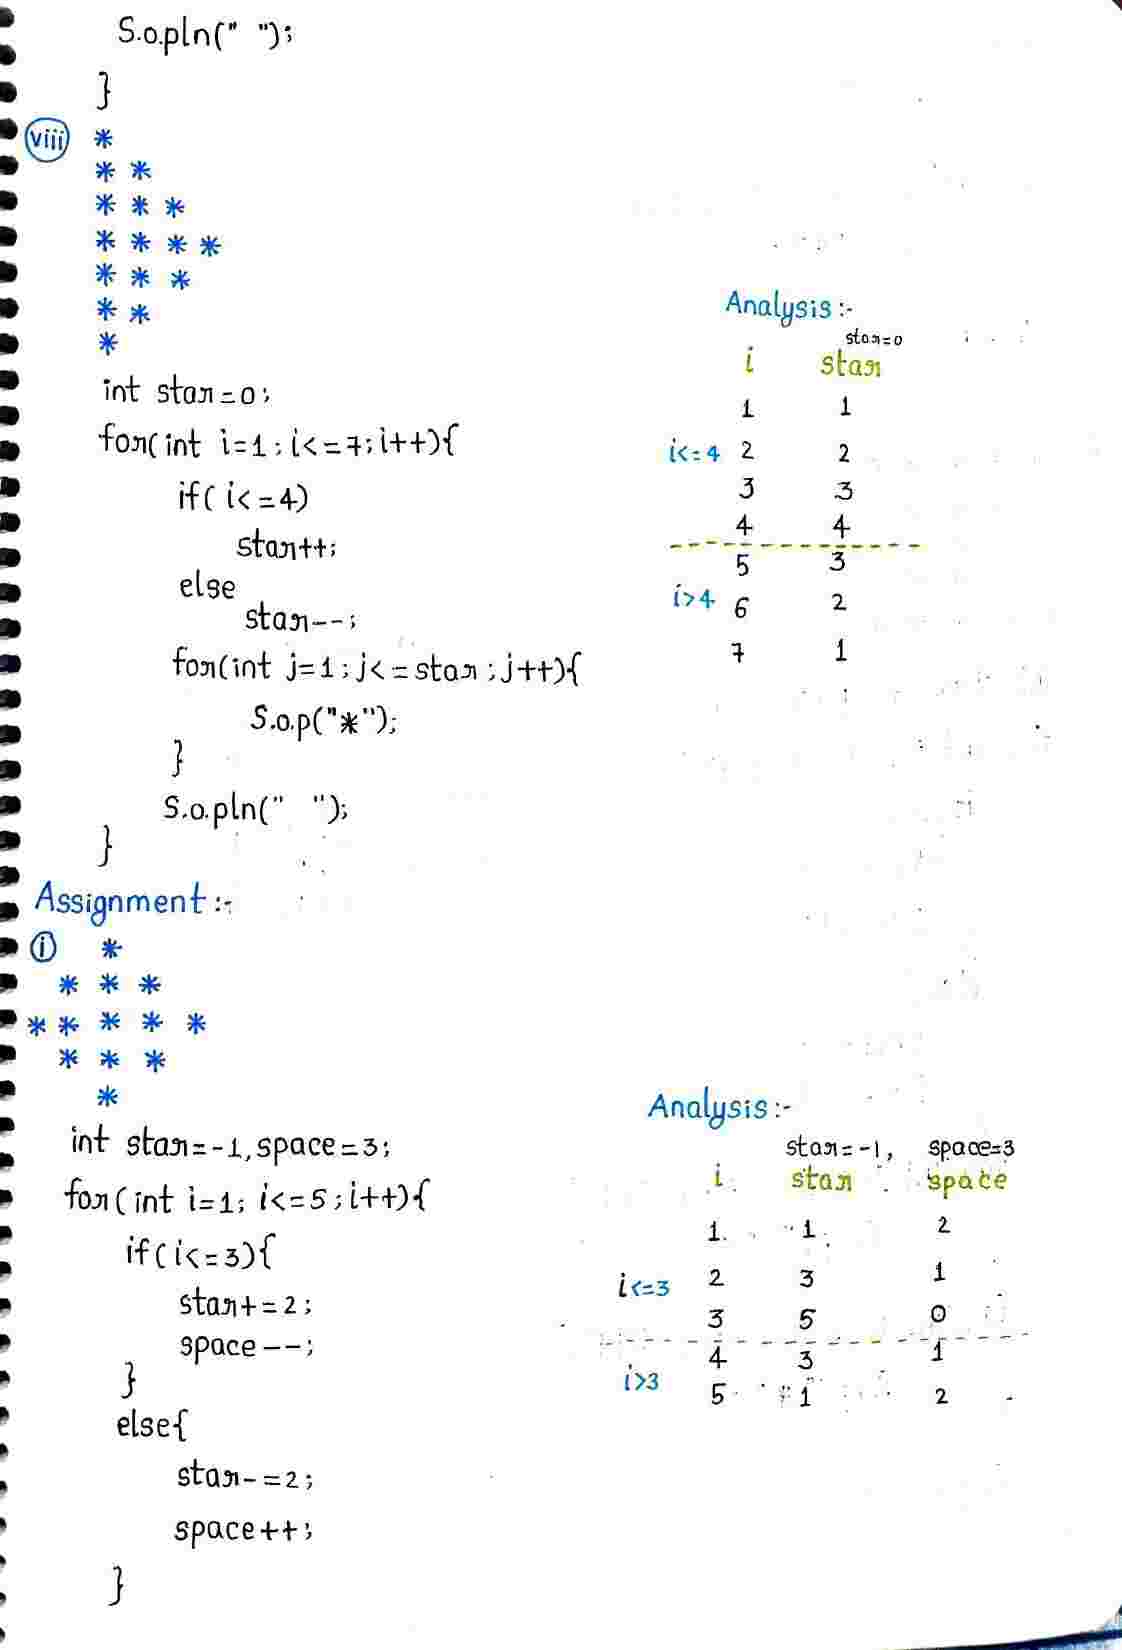 S.o.pln(" ");
}
viii *
* *
* * *
* * * *
* * *
* *
*
int star=0;
for(int i=1;i<=7;i++){
if(i<=4)
star++;
else
star--;
for(int j=1;j<=star;j++){
S.o.p("*");
}
S.o.pln(" ");
}
Analysis:-
star=0
i star
1 1
i<=4 2 2
3 3
4 4
5 3
i>4 6 2
7 1
Assignment:-
i *
* * *
* * * * *
* * *
*
int star=-1,space=3;
for(int i=1; i<=5;i++){
if(i<=3){
star+=2;
space--;
}
else{
star-=2;
space++;
}
Analysis:-
star=-1, space=3
i star space
1 1 2
i<=3 2 3 1
3 5 0
4 3 1
i>3
5 1 2